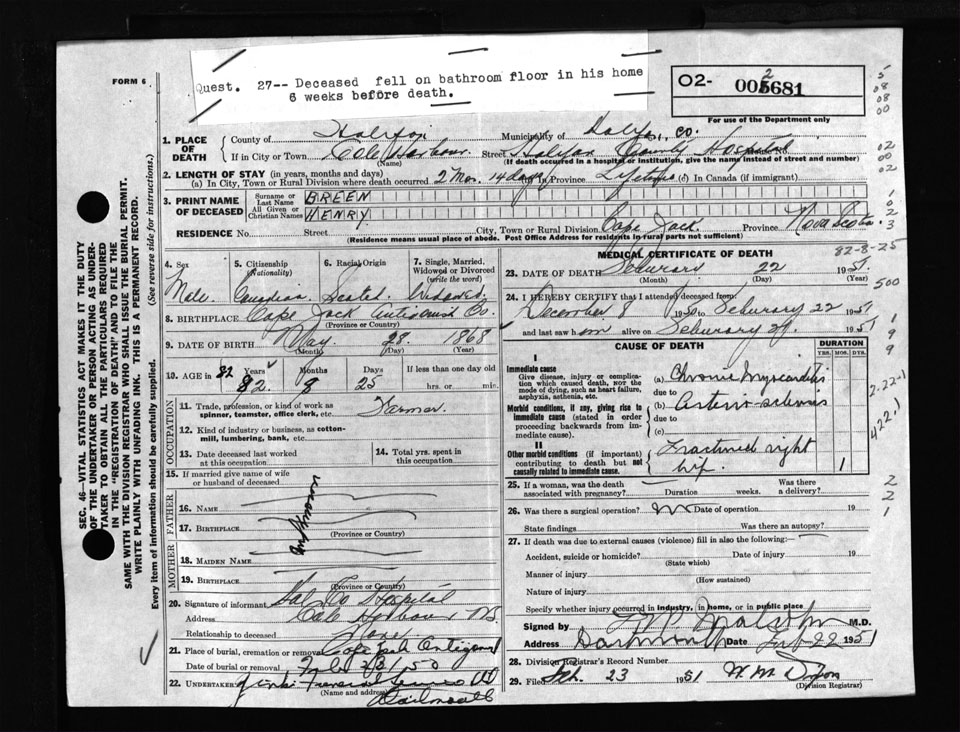 FORM 6
Quest. 27-- Deceased fell on bathroom floor in his home
6 weeks before death.
O2-
2
005681
For use of the Department only
5
08
08
00
02
00
02
1
0
2
3
82-8-25
500
1
9
9
2-22-1
422-1
2
2
1
SEC. 46—VITAL STATISTICS ACT MAKES IT THE DUTY
OF THE UNDERTAKER OR PERSON ACTING AS UNDER-
TAKER TO OBTAIN ALL THE PARTICULARS REQUIRED
IN THE "REGISTRATION OF DEATH" AND TO FILE THE
SAME WITH THE DIVISION REGISTRAR WHO SHALL ISSUE THE BURIAL PERMIT.
WRITE PLAINLY WITH UNFADING INK. THIS IS A PERMANENT RECORD.
Every item of information should be carefully supplied. (See reverse side for instructions.)
1. PLACE OF DEATH
County of Halifax Municipality of Halifax Co.
If in City or Town Cole Harbour Street Halifax County Hospital No.
(Name) (If death occurred in a hospital or institution, give the name instead of street and number)
2. LENGTH OF STAY (in years, months and days)
(a) In City, Town or Rural Division where death occurred 2 Mos. 14 days In Province Lifetime (c) In Canada (if immigrant)
3. PRINT NAME OF DECEASED
Surname or Last Name BREEN
All Given or Christian Names HENRY
RESIDENCE No. Street City, Town or Rural Division Cape Jack Province Nova Scotia
(Residence means usual place of abode. Post Office Address for residents in rural parts not sufficient)
4. Sex
Male
5. Citizenship (Nationality)
Canadian
6. Racial Origin
Scotch
7. Single, Married, Widowed or Divorced (write the word)
Widowed
8. BIRTHPLACE Cape Jack Antigonish Co.
(Province or Country)
9. DATE OF BIRTH May 28 1868
(Month) (Day) (Year)
10. AGE in 82 Years Months Days If less than one day old
82 8 25 hrs. or min.
OCCUPATION
11. Trade, profession, or kind of work as spinner, teamster, office clerk, etc. Farmer
12. Kind of industry or business, as cotton-mill, lumbering, bank, etc.
13. Date deceased last worked at this occupation
14. Total yrs. spent in this occupation
15. If married give name of wife or husband of deceased
FATHER
16. Name
17. Birthplace
(Province or Country)
MOTHER
18. Maiden Name
19. Birthplace
(Province or Country)
Unknown
20. Signature of informant Hal Co Hospital
Address Cole Harbour NS
Relationship to deceased None
21. Place of burial, cremation or removal Cape Jack Antigonish
Date of burial or removal Feb 23/50
22. Undertaker Funeral Service
(Name and address)
Dartmouth
MEDICAL CERTIFICATE OF DEATH
23. DATE OF DEATH February 22 1951
(Month) (Day) (Year)
24. I HEREBY CERTIFY that I attended deceased from
December 8 1950 to February 22 1951
and last saw him alive on February 1951
CAUSE OF DEATH
DURATION
YRS. MOS. DYS.
I
Immediate cause
Give disease, injury or complication which caused death, NOT the mode of dying, such as heart failure, asphyxia, asthenia, etc.
(a) Chronic Myocarditis
due to
Morbid conditions, if any, giving rise to immediate cause (stated in order proceeding backwards from immediate cause).
(b) Arterio-sclerosis
due to
(c)
II
Other morbid conditions (if important) contributing to death but not causally related to immediate cause.
Fractured right
hip. 1
25. If a woman, was the death associated with pregnancy? Duration weeks. Was there a delivery?
26. Was there a surgical operation? No Date of operation 19
State findings Was there an autopsy?
27. If death was due to external causes (violence) fill in also the following:—
Accident, suicide or homicide? Date of injury 19
(State which)
Manner of injury
(How sustained)
Nature of injury
Specify whether injury occurred in industry, in home, or in public place
Signed by M.D.
Address Dartmouth Date Feb 22 1951
28. Division Registrar's Record Number
29. Filed Feb. 23 1951 W. M. Dixon
(Division Registrar)